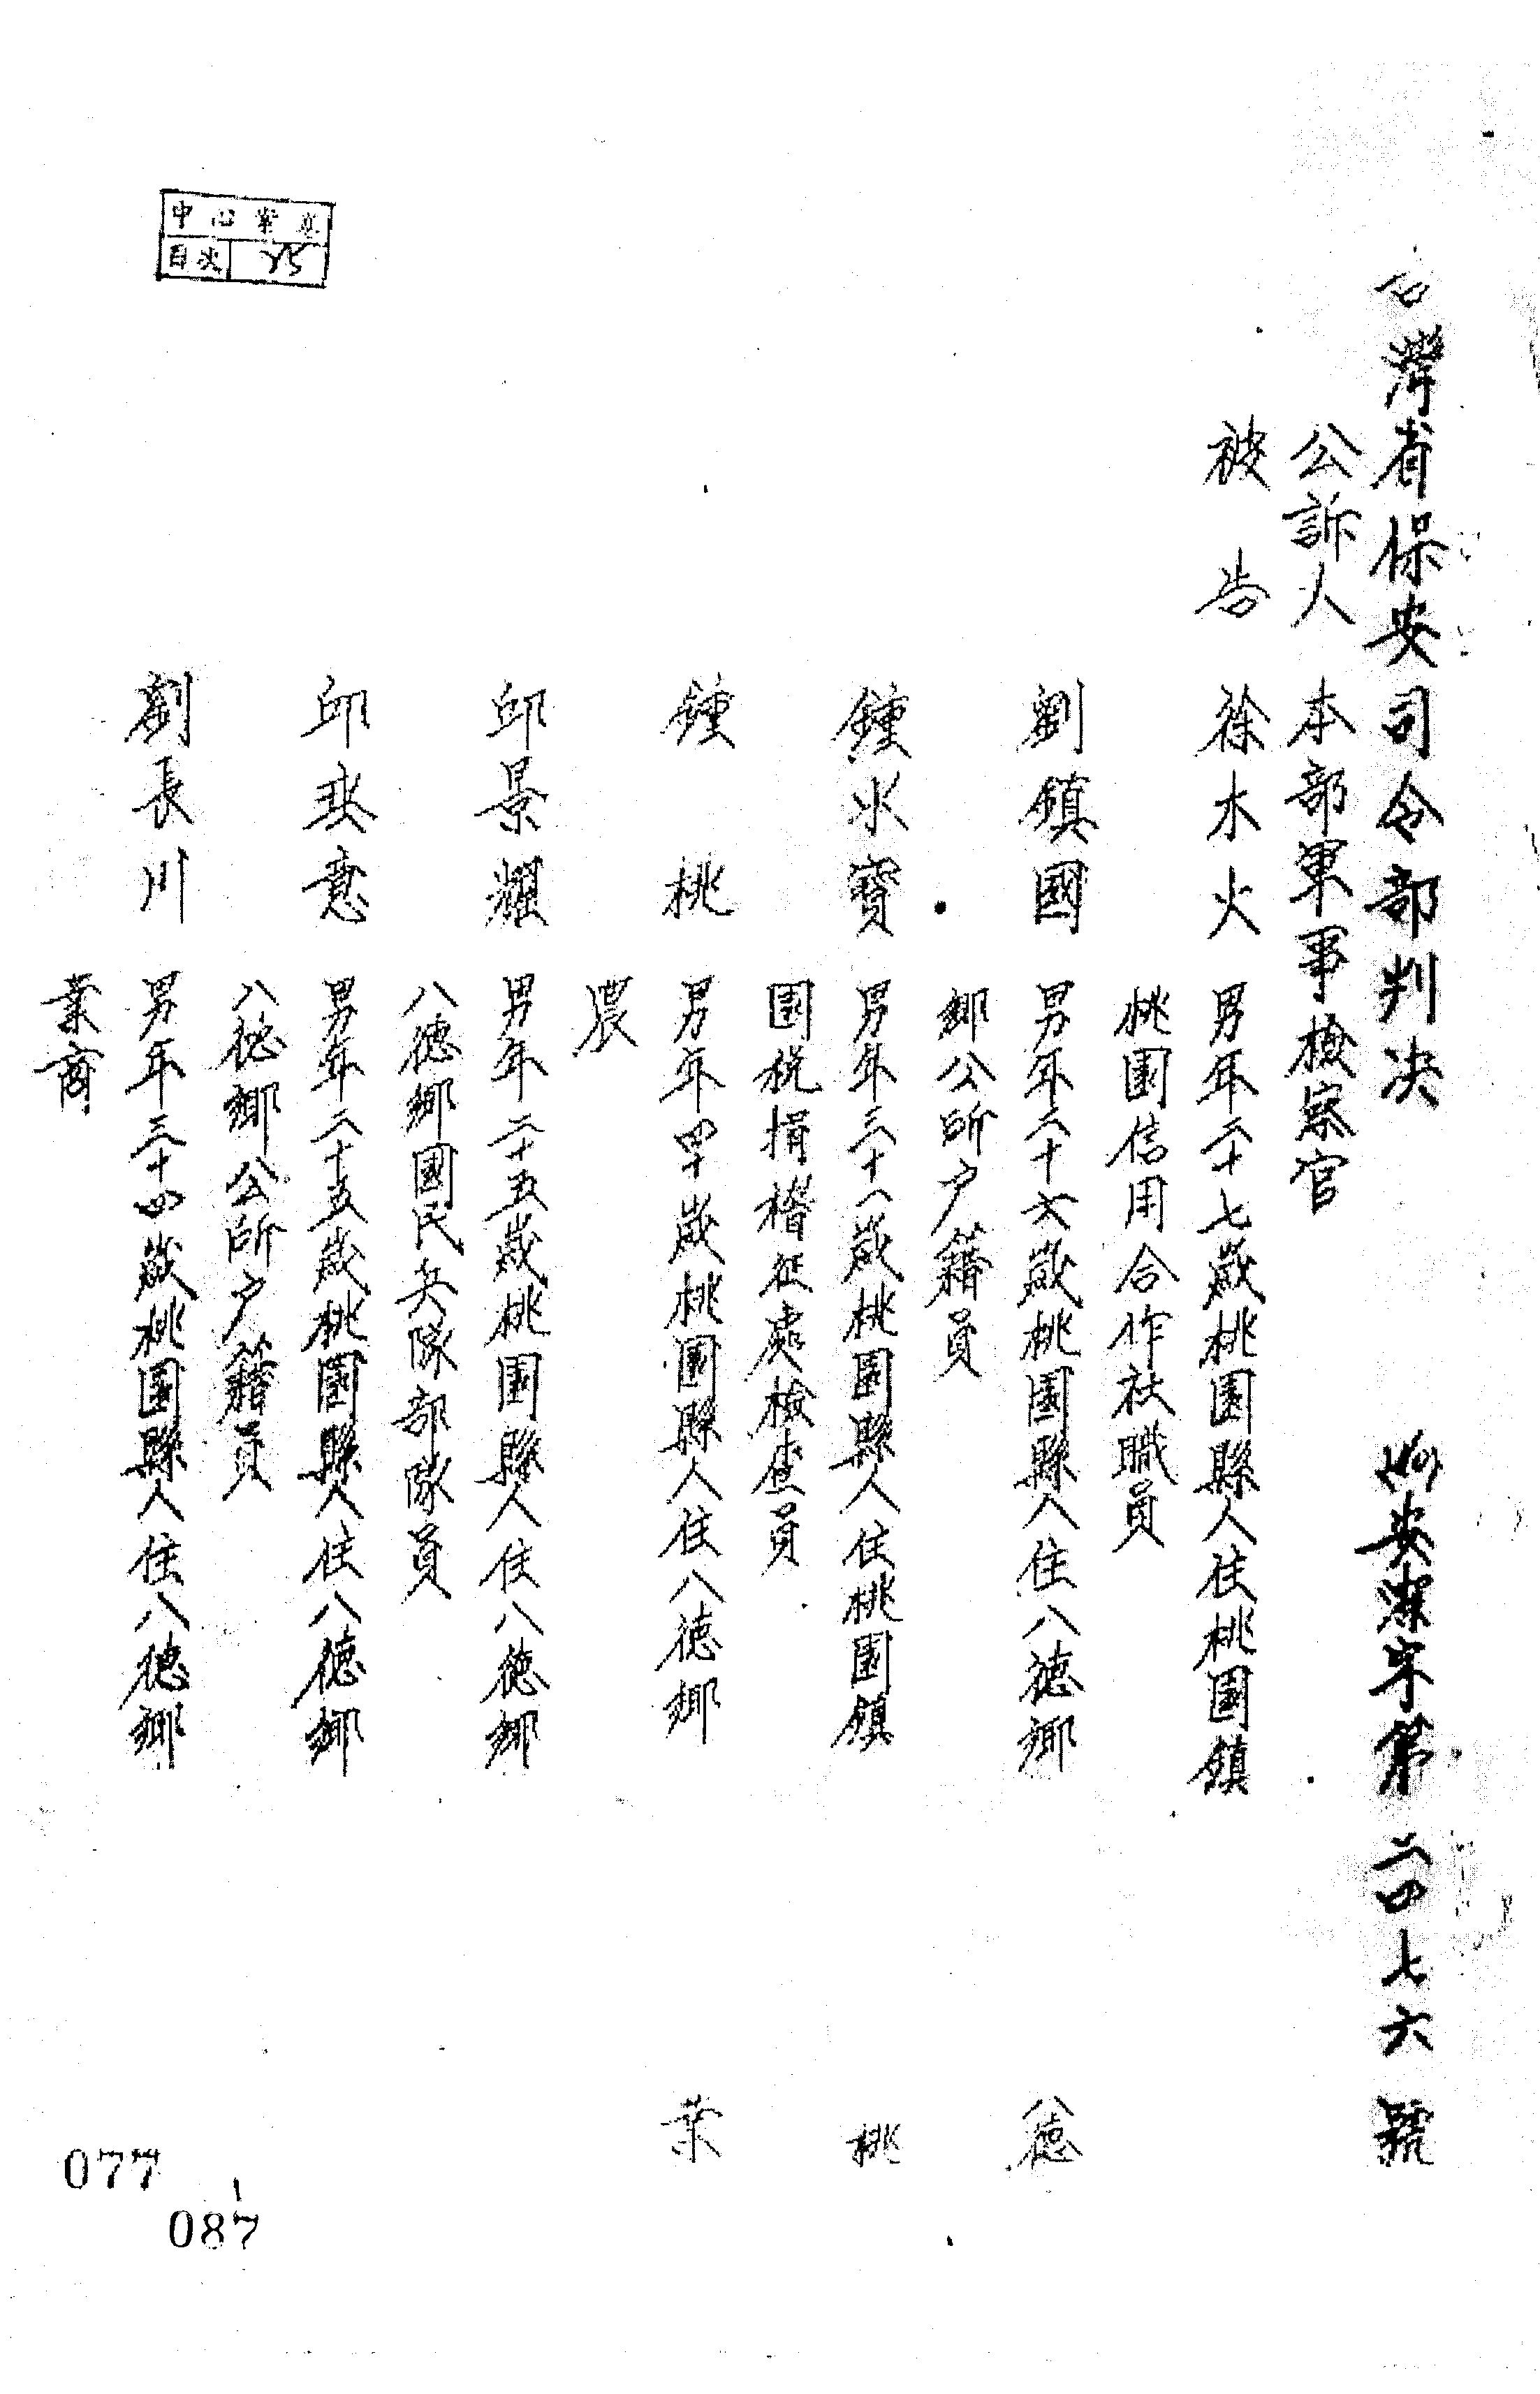 台灣省保安司令部判決 安潔字第二四七六號
公訴人 本部軍事檢察官
被告 徐木火 男年二十七歲桃園縣人住桃園鎮
桃園信用合作社職員
劉鎮國 男年二十六歲桃園縣人住八德鄉 八德
鄉公所户籍員
鍾水寶 男年三十一歲桃園縣人住桃園鎮 桃
園稅捐稽征處檢查員
鍾桃 男年四十歲桃園縣人住八德鄉 業
農
邱景耀 男年二十五歲桃園縣人住八德鄉
八德鄉國民兵隊部隊員
邱 意 男年二十五歲桃園縣人住八德鄉
八德鄉公所户籍員
劉長川 男年三十四歲桃園縣人住八德鄉
業商
中心業
目次
077
087